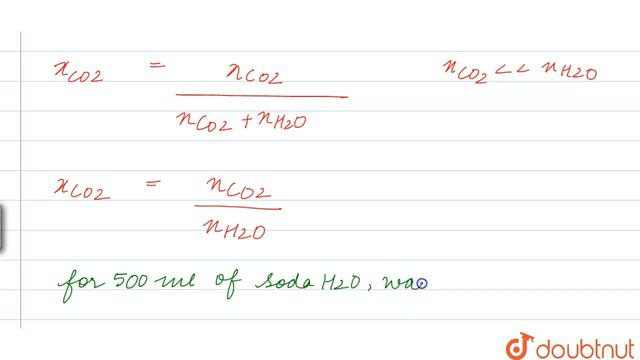 xCO2 = nCO2 / nCO2 + nH2O nCO2 << nH2O
xCO2 = nCO2 / nH2O
for 500 ml of soda H2O,
doubtnut